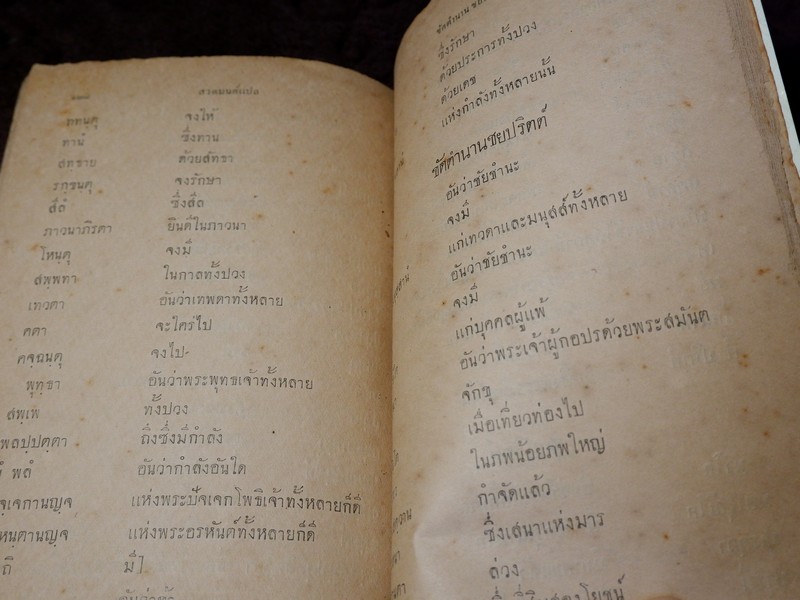 ๒๓๘ สวดมนต์แปล
ททนฺตุ จงให้
ทานํ ซึ่งทาน
สทฺธาย ด้วยสัทธา
รกฺขนฺตุ จงรักษา
สีลํ ซึ่งสีล
ภาวนาภิรตา ยินดีในภาวนา
โหนฺตุ จงมี
สพฺพทา ในกาลทั้งปวง
เทวตา อันว่าเทพดาทั้งหลาย
คตา จะใคร่ไป
คจฺฉนฺตุ จงไป
พุทฺธา อันว่าพระพุทธเจ้าทั้งหลาย
สพฺเพ ทั้งปวง
พลปฺปตฺตา ถึงซึ่งมีกำลัง
พลํ อันว่ากำลังอันใด
จฺเจกานญฺจ แห่งพระปัจเจกโพธิเจ้าทั้งหลายก็ดี
หนฺตานญฺจ แห่งพระอรหันต์ทั้งหลายก็ดี
ถิ มีๅ
ซัดตำนาน ชย
ซึ่งรักษา
ด้วยประการทั้งปวง
ด้วยเดช
แห่งกำลังทั้งหลายนั้น
ซัดตำนานชยปริตต์
อันว่าชัยชำนะ
จงมี
แก่เทวดาและมนุสส์ทั้งหลาย
อันว่าชัยชำนะ
จงมี
แก่บุคคลผู้แพ้
อันว่าพระเจ้าผู้กอปรด้วยพระสมันต
จักขุ
เมื่อเที่ยวท่องไป
ในภพน้อยภพใหญ่
กำจัดแล้ว
ซึ่งเสนาแห่งมาร
ล่วง